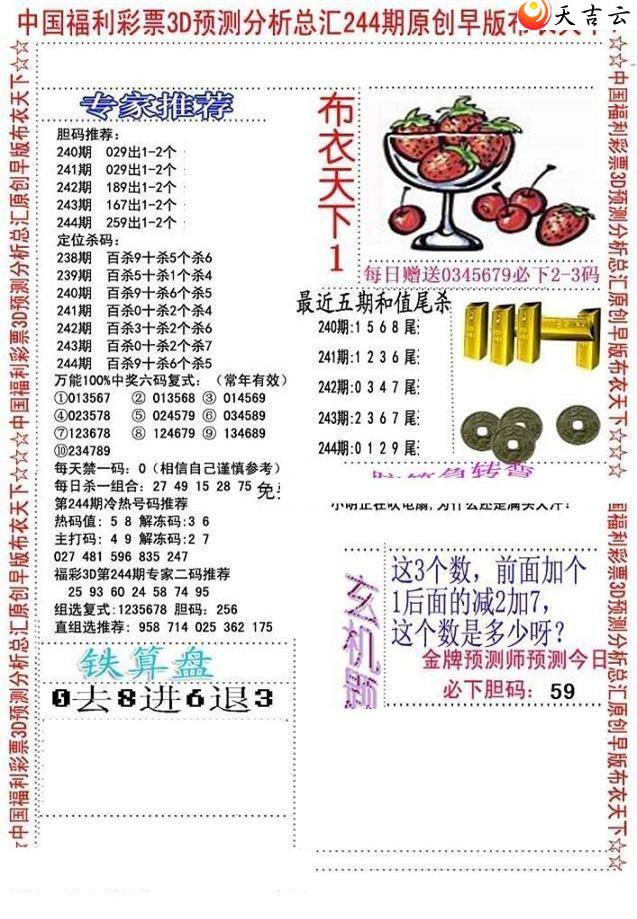 中国福利彩票3D预测分析总汇244期原创早版布衣天下
天吉云
☆☆中国福利彩票3D预测分析总汇原创早版布衣天下☆☆☆中国福利彩票3D预测分析总汇原创早版布衣天下☆☆
专家推荐
胆码推荐:
240期 029出1-2个
241期 029出1-2个
242期 189出1-2个
243期 167出1-2个
244期 259出1-2个
定位杀码:
238期 百杀9十杀5个杀6
239期 百杀5十杀1个杀4
240期 百杀9十杀6个杀5
241期 百杀0十杀2个杀4
242期 百杀3十杀2个杀6
243期 百杀0十杀2个杀7
244期 百杀9十杀6个杀5
万能100%中奖六码复式:(常年有效)
①013567 ② 013568 ③ 014569
④023578 ⑤ 024579 ⑥ 034589
⑦123678 ⑧ 124679 ⑨ 134689
⑩234789
每天禁一码:0(相信自己谨慎参考)
每日杀一组合:27 49 15 28 75
第244期冷热号码推荐
热码值:5 8 解冻码:3 6
主打码:4 9 解冻码:2 7
027 481 596 835 247
福彩3D第244期专家二码推荐
25 93 60 24 58 74 95
组选复式:1235678 胆码:256
直组选推荐:958 714 025 362 175
铁算盘
0去8进6退3
布衣天下1
每日赠送0345679必下2-3码
最近五期和值尾杀
240期:1 5 6 8 尾
241期:1 2 3 6 尾
242期:0 3 4 7 尾
243期:2 3 6 7 尾
244期:0 1 2 9 尾
脑筋急转弯
小明正在吹电扇,为什么还是满头大汗?
玄机题
这3个数,前面加个
1后面的减2加7,
这个数是多少呀?
金牌预测师预测今日
必下胆码:59
☆☆中国福利彩票3D预测分析总汇原创早版布衣天下☆☆
国福利彩票3D预测分析总汇原创早版布衣天下☆☆